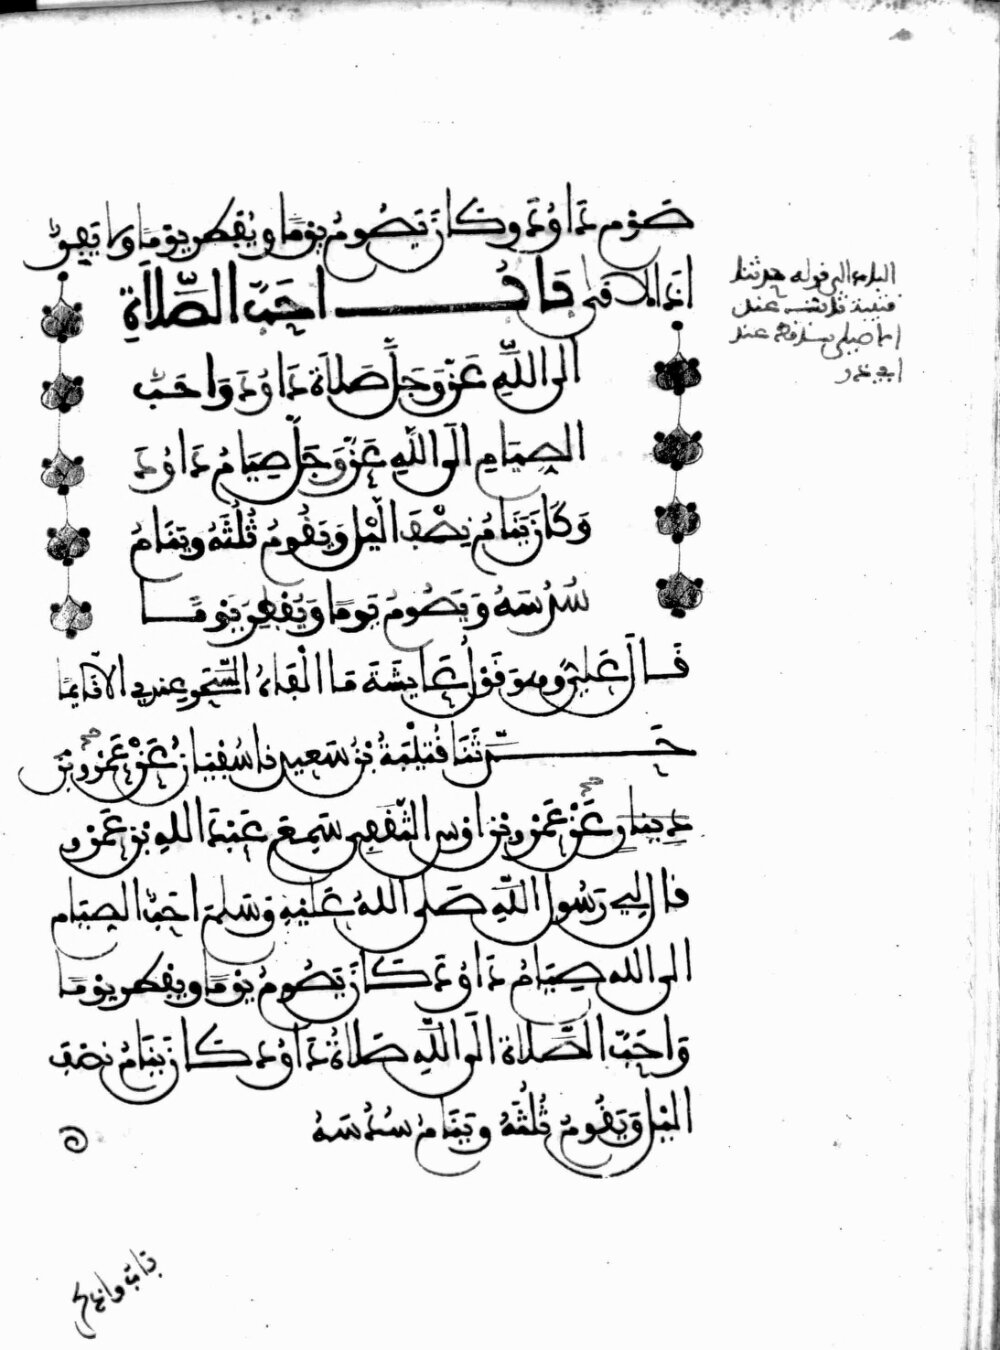 صَوْم دَاوُدَ وكَانَ يَصُومُ يَوْمًا ويُفطر يوْمًا ولا يَفِرُّ
اذا لاقى بَابُ احَبُّ الصَّلَاةِ
الى اللَّهِ عَزّ وَجَلَّ صَلَاةُ دَاوُدَ وَاحَبُّ
الصِيَامِ الَى اللَّهِ عَزّ وَجَلَّ صِيَامُ دَاوُدَ
وَكَانَ يَنَامُ نِصْفَ الَّيْلِ وَيَقُومُ ثُلُثَهُ ويَنَامُ
سُدُسَهُ وَيَصُومُ يَومًا وَيُفْطِرُ يَوْمًا
قَالَ عَلِيٌّ وهوَ قَوْلُ عَايِشَةَ مَا الْفَاهُ السَّحَرُ عِندي الَّا نَايِمًا
حَدَّثَنَا قُتَيْبَةُ بْنُ سَعِيدٍ نا سُفْيَانُ عَنْ عَمْرو بْنِ
دِينَارٍ عَنْ عَمْرِو بْنِ اوْسٍ الثَّقَفِي سَمِعَ عَبْدَ اللهِ بْنَ عَمْرٍو
قال لِي رَسُول اللَّهِ صَلى اللهُ عَلَيْهِ وَسَلمَ احَبُّ الصِيَام
الى الله صِيَامُ دَاوُدَ كَانَ يَصُومُ يَوْمًا ويفطر يوْمًا
وَاحَبُّ الصَّلاة الَى اللَّهِ صَلاةُ دَاوُدَ كَانَ يَنَامُ نصْفَ
اليْلِ وَيَقُومُ ثُلُثَهُ ويَنَامُ سُدُسَهُ
الى قوله حدثنا
قتيبة عند
عند
ابي ذر